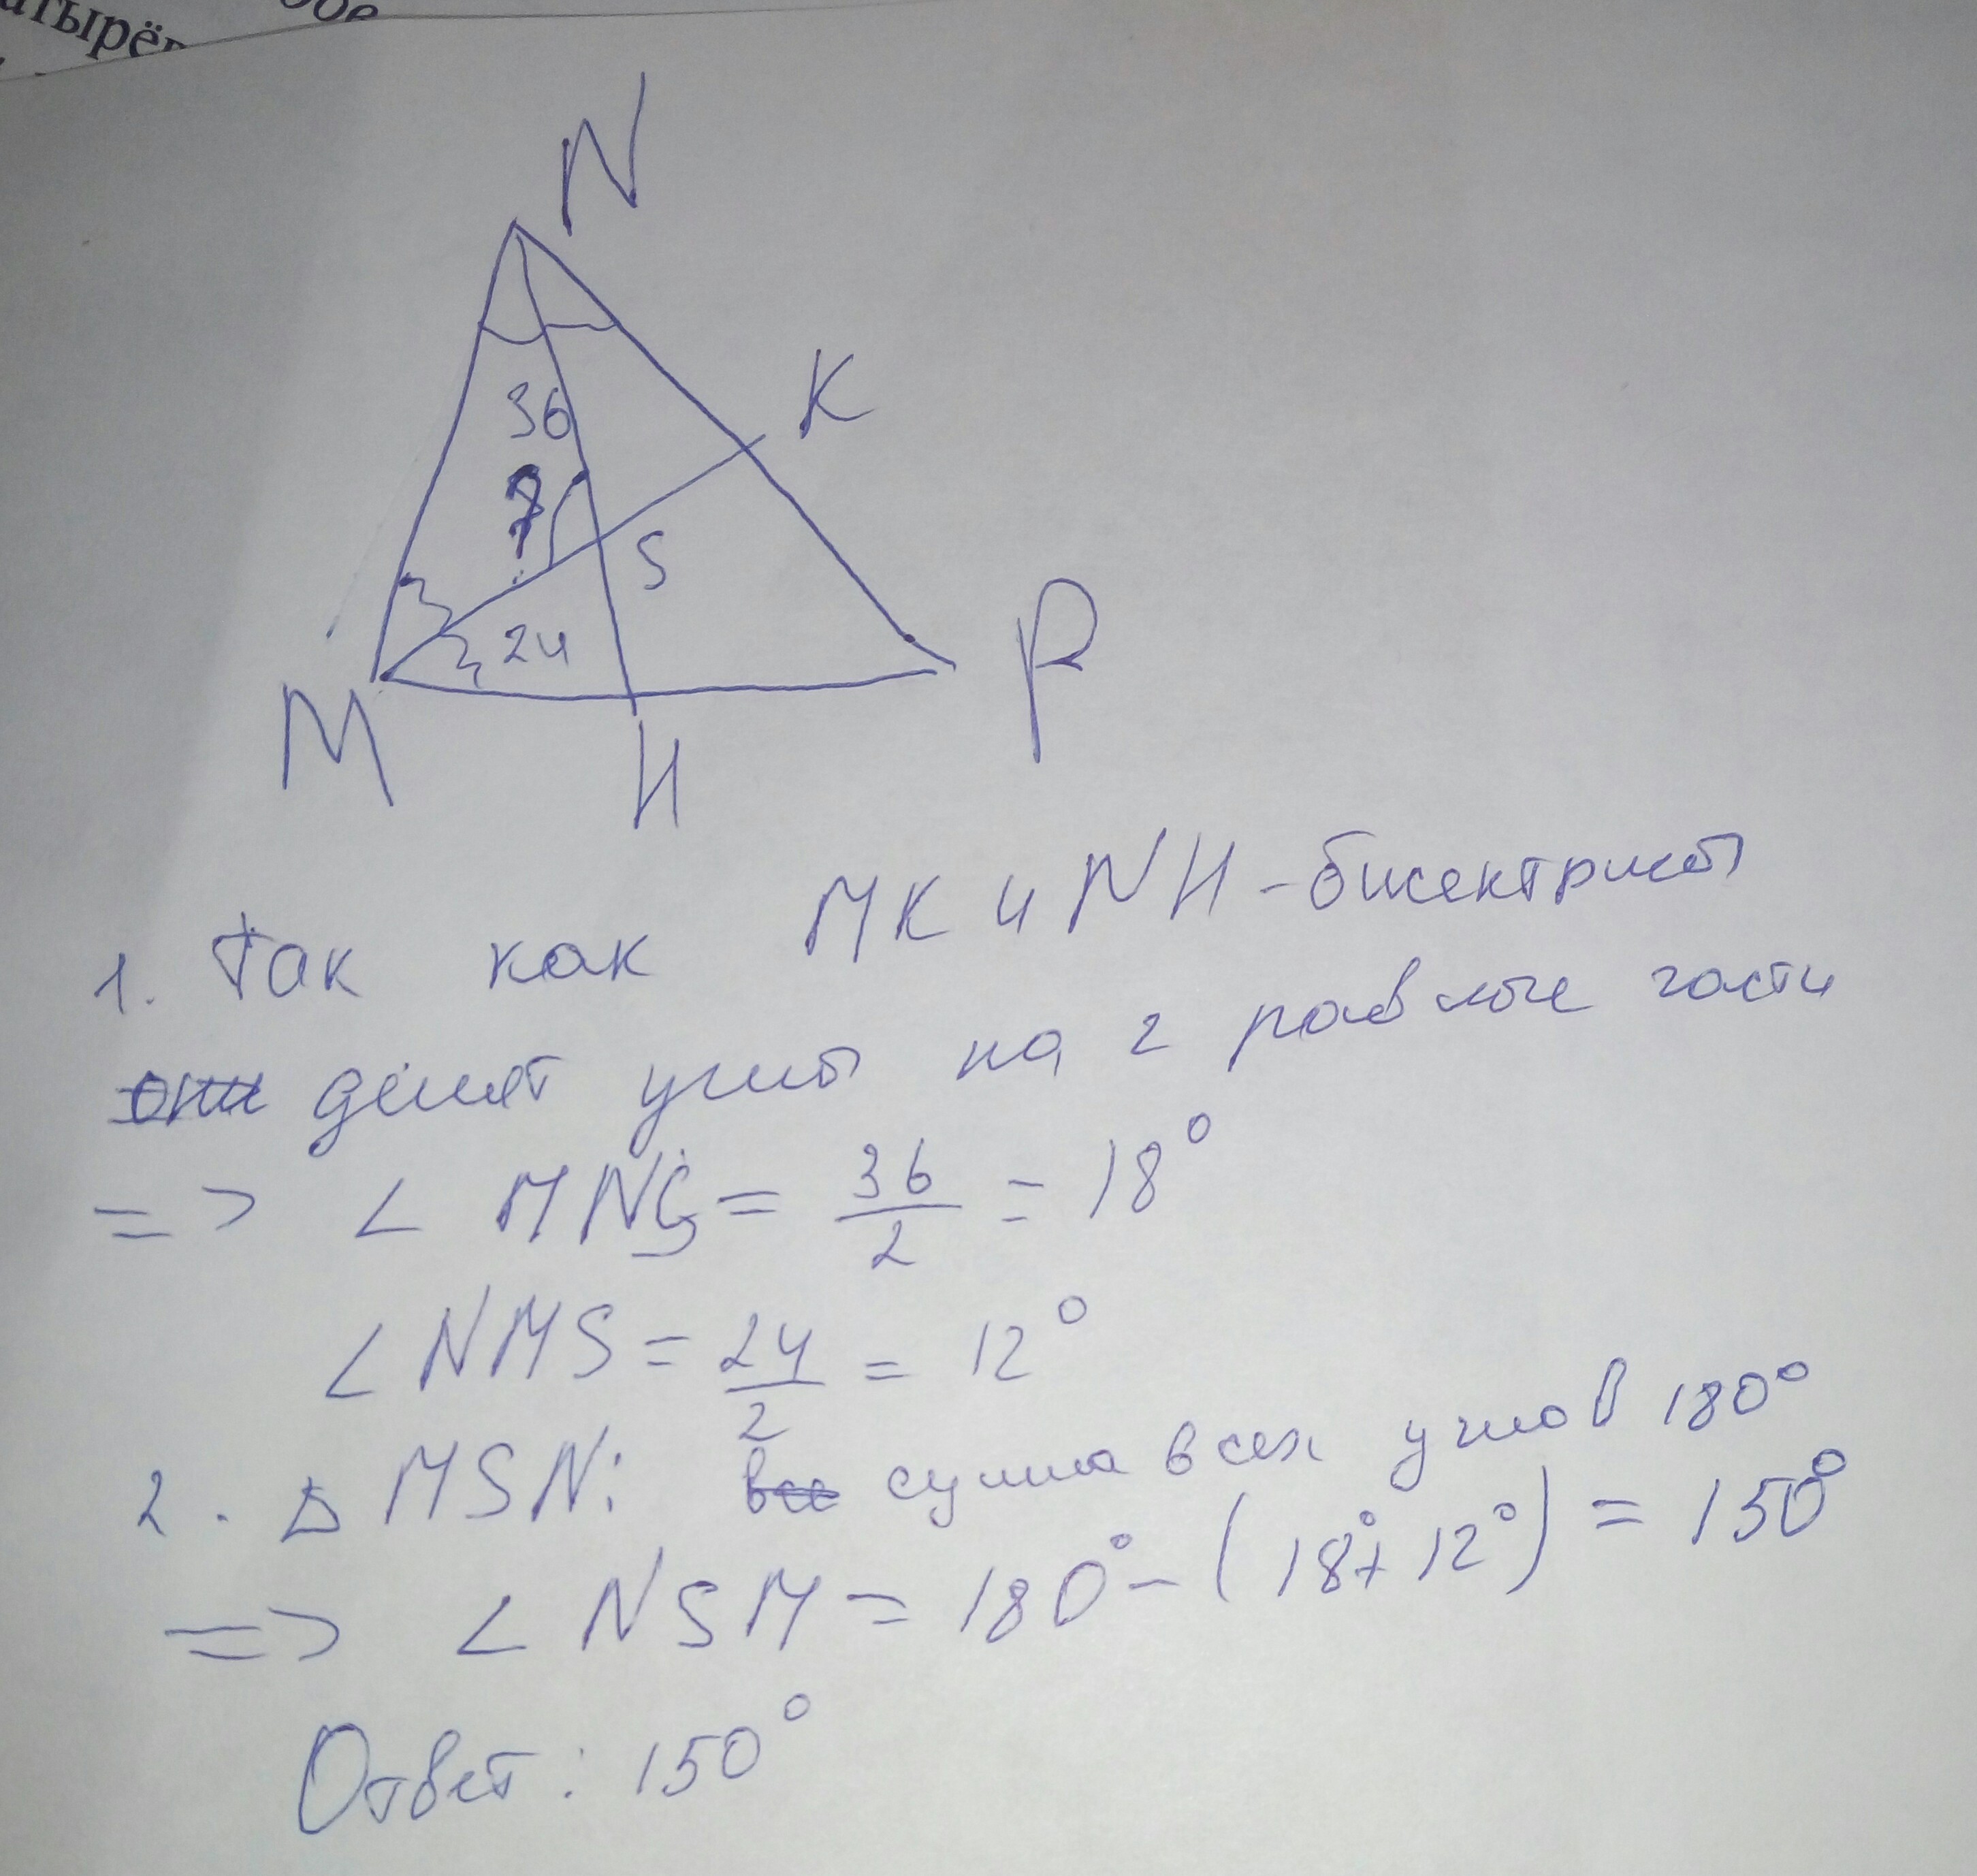 N
36
K
?
S
24
M
P
H
1. Так как МК и NH - бисектрисы
они делят углы на 2 равные части
=> ∠ MNS = 36/2 = 18°
∠ NMS = 24/2 = 12°
2. △ MSN: все сумма всех углов 180°
=> ∠ NSM = 180° - (18° + 12°) = 150°
Ответ: 150°